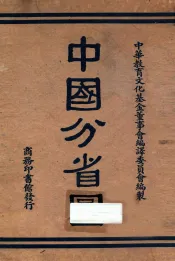 中華教育文化基金董事會編譯委員會編製
中國分省圖
商務印書館發行